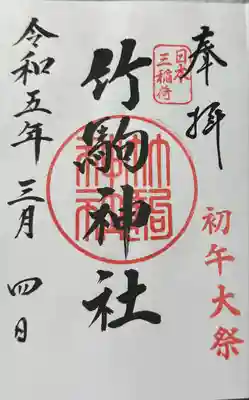 奉拝
日本
三稲荷
初午大祭
竹駒神社
竹駒
神社
令和五年三月四日